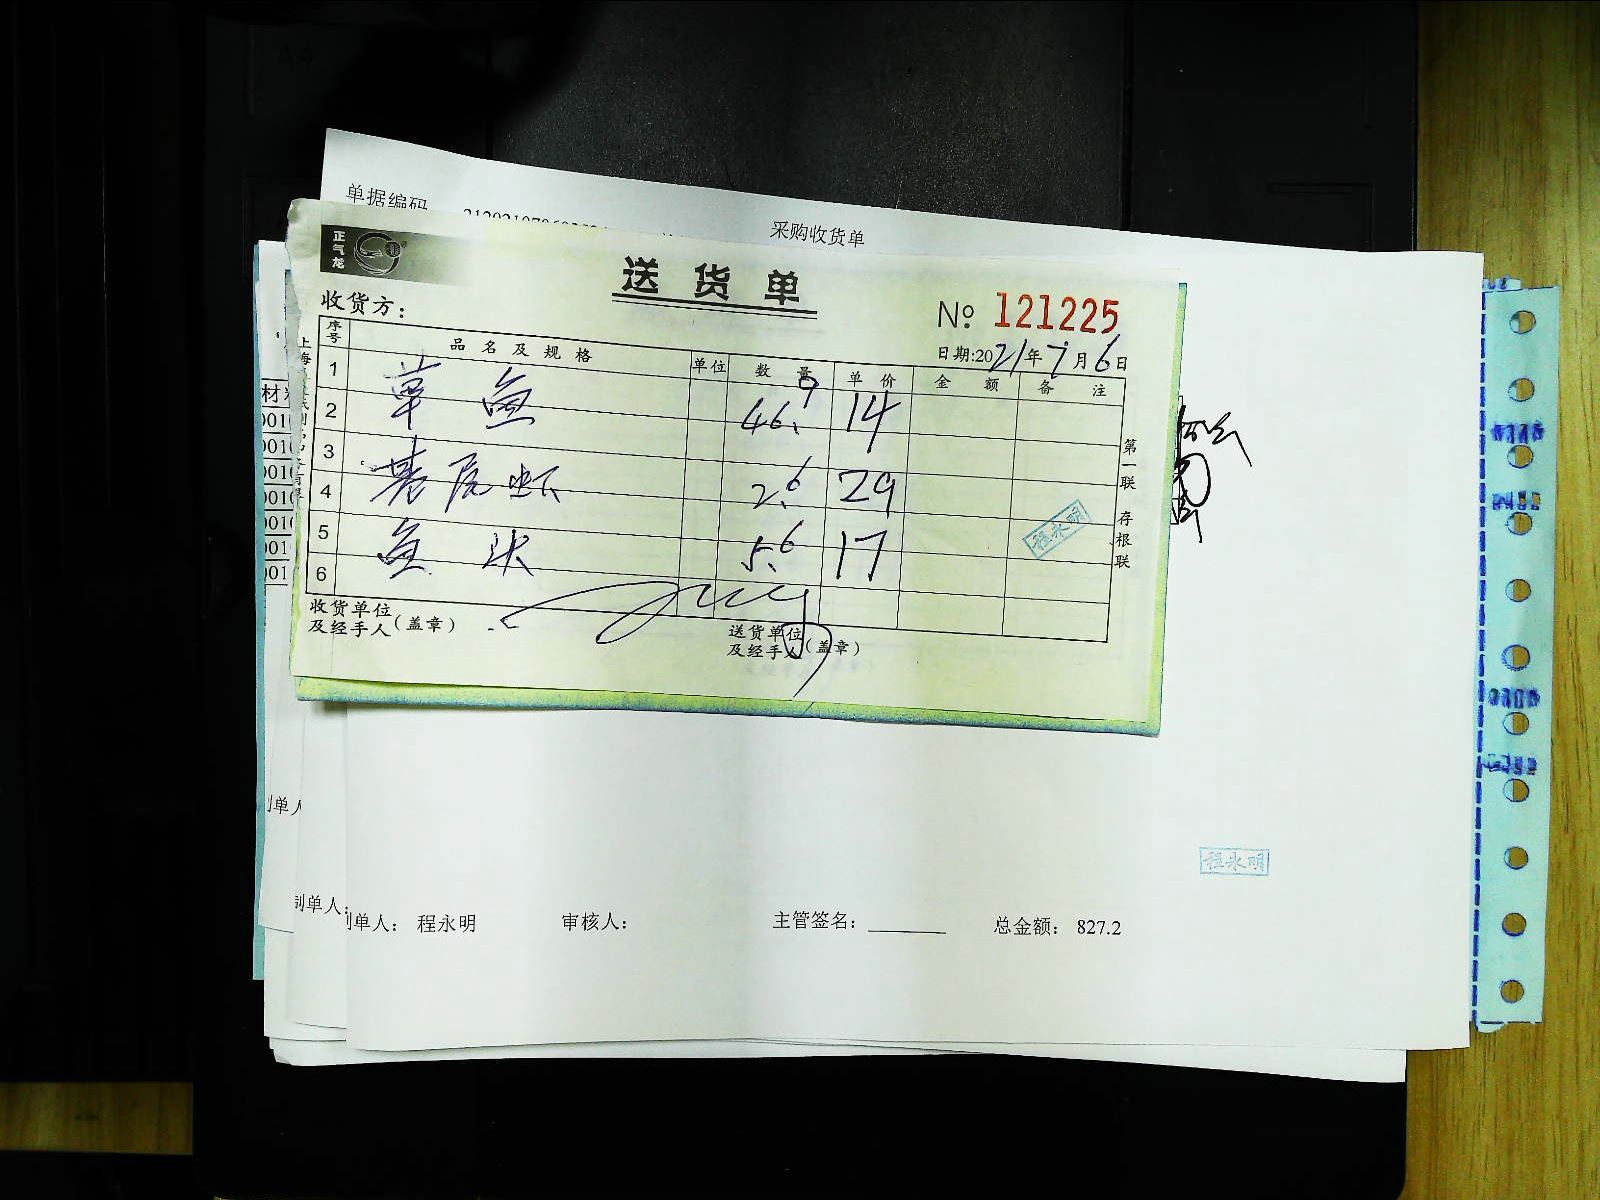 单据编码
采购收货单
正气龙
送货单
收货方：
№ 121225
日期:2021年7月6日
序号 品名及规格 单位 数量 单价 金额 备注
1
草鱼 46.9 14
2
3
基尾虾 2.6 29
4
5
鱼块 5.6 17
6
第一联 存根联
程永明
收货单位
及经手人(盖章)
送货单位
及经手人(盖章)
程永明
制单人：
制单人： 程永明 审核人： 主管签名： 总金额： 827.2